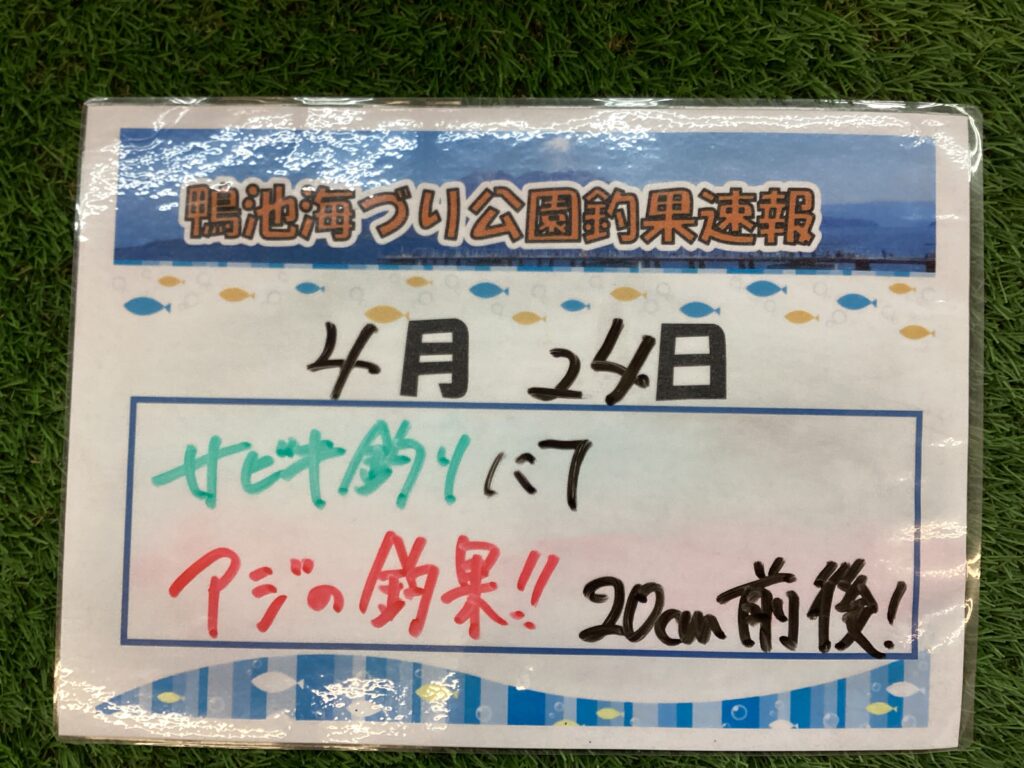 鴨池海づり公園釣果速報
4月 24日
サビキ釣りにて
アジの釣果!! 20cm前後!